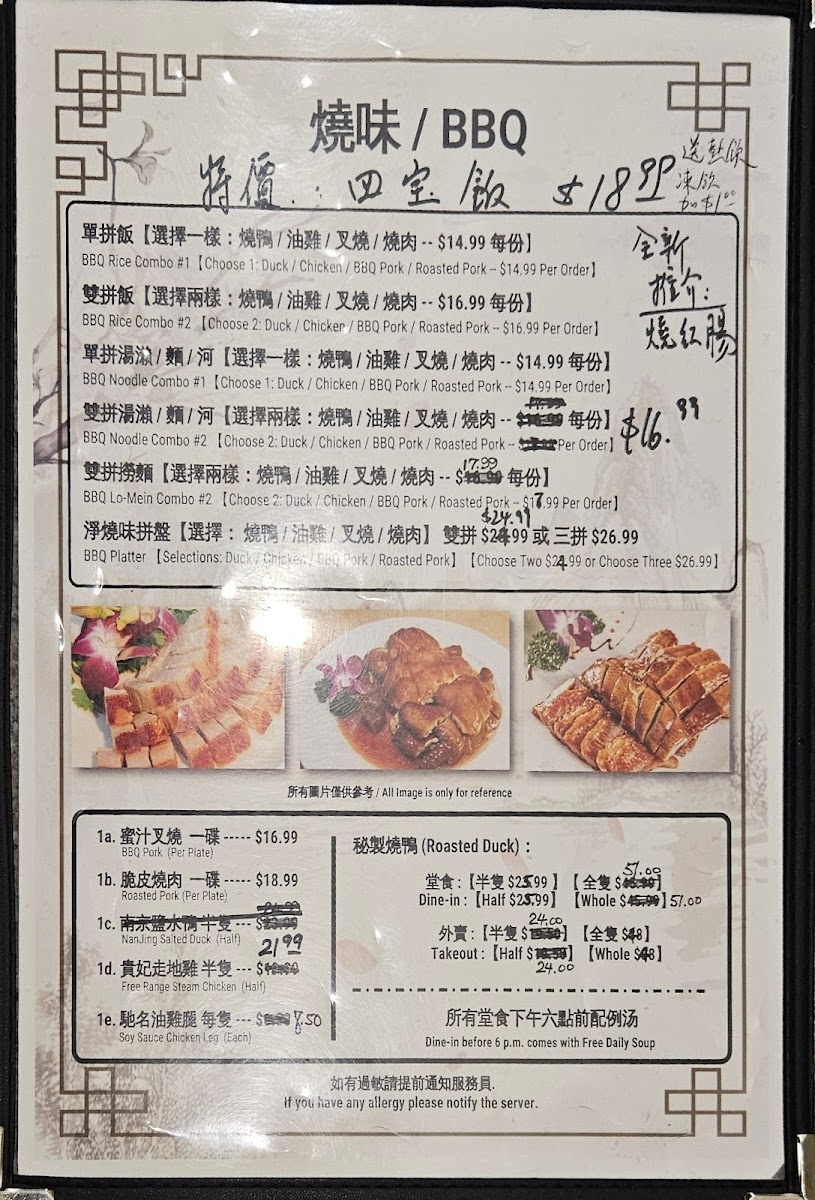 燒味 / BBQ
特價：四宝飯 $18.99
送熱飲
凍飲
加$1.00
全新
推介：
燒紅腸
單拼飯【選擇一樣：燒鴨 / 油雞 / 叉燒 / 燒肉 -- $14.99 每份】
BBQ Rice Combo #1【Choose 1: Duck / Chicken / BBQ Pork / Roasted Pork -- $14.99 Per Order】
雙拼飯【選擇兩樣：燒鴨 / 油雞 / 叉燒 / 燒肉 -- $16.99 每份】
BBQ Rice Combo #2 【Choose 2: Duck / Chicken / BBQ Pork / Roasted Pork -- $16.99 Per Order】
單拼湯瀨 / 麵 / 河【選擇一樣：燒鴨 / 油雞 / 叉燒 / 燒肉 -- $14.99 每份】
BBQ Noodle Combo #1 【Choose 1: Duck / Chicken / BBQ Pork / Roasted Pork -- $14.99 Per Order】
雙拼湯瀨 / 麵 / 河【選擇兩樣：燒鴨 / 油雞 / 叉燒 / 燒肉 -- 每份】 $16.99
BBQ Noodle Combo #2 【Choose 2: Duck / Chicken / BBQ Pork / Roasted Pork -- Per Order】
雙拼撈麵【選擇兩樣：燒鴨 / 油雞 / 叉燒 / 燒肉 -- $17.99 每份】
BBQ Lo-Mein Combo #2 【Choose 2: Duck / Chicken / BBQ Pork / Roasted Pork -- $17.99 Per Order】
$24.99
淨燒味拼盤【選擇： 燒鴨 / 油雞 / 叉燒 / 燒肉】 雙拼 $24.99 或 三拼 $26.99
BBQ Platter 【Selections: Duck / Chicken / BBQ Pork / Roasted Pork】【Choose Two $24.99 or Choose Three $26.99】
所有圖片僅供參考 / All Image is only for reference
1a. 蜜汁叉燒 一碟 ----- $16.99
BBQ Pork (Per Plate)
1b. 脆皮燒肉 一碟 ----- $18.99
Roasted Pork (Per Plate)
1c. 南京鹽水鴨 半隻 --- $23.99
NanJing Salted Duck (Half)
21.99
1d. 貴妃走地雞 半隻 --- $
Free Range Steam Chicken (Half)
1e. 馳名油雞腿 每隻 --- $ 7.50
Soy Sauce Chicken Leg (Each)
秘製燒鴨 (Roasted Duck)：
51.00
堂食：【半隻 $25.99 】【 全隻 $45.99】
Dine-in :【Half $25.99】 【Whole $45.99】 51.00
24.00
外賣：【半隻 $】 【全隻 $48】
Takeout :【Half $】 【Whole $48】
24.00
所有堂食下午六點前配例汤
Dine-in before 6 p.m. comes with Free Daily Soup
如有過敏請提前通知服務員.
If you have any allergy please notify the server.